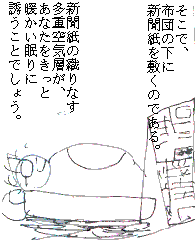 そこで、
布団の下に
新聞紙を敷くのである。
新聞紙の織りなす
多重空気層が、
あなたをきっと
暖かい眠りに
誘うことでしょう。